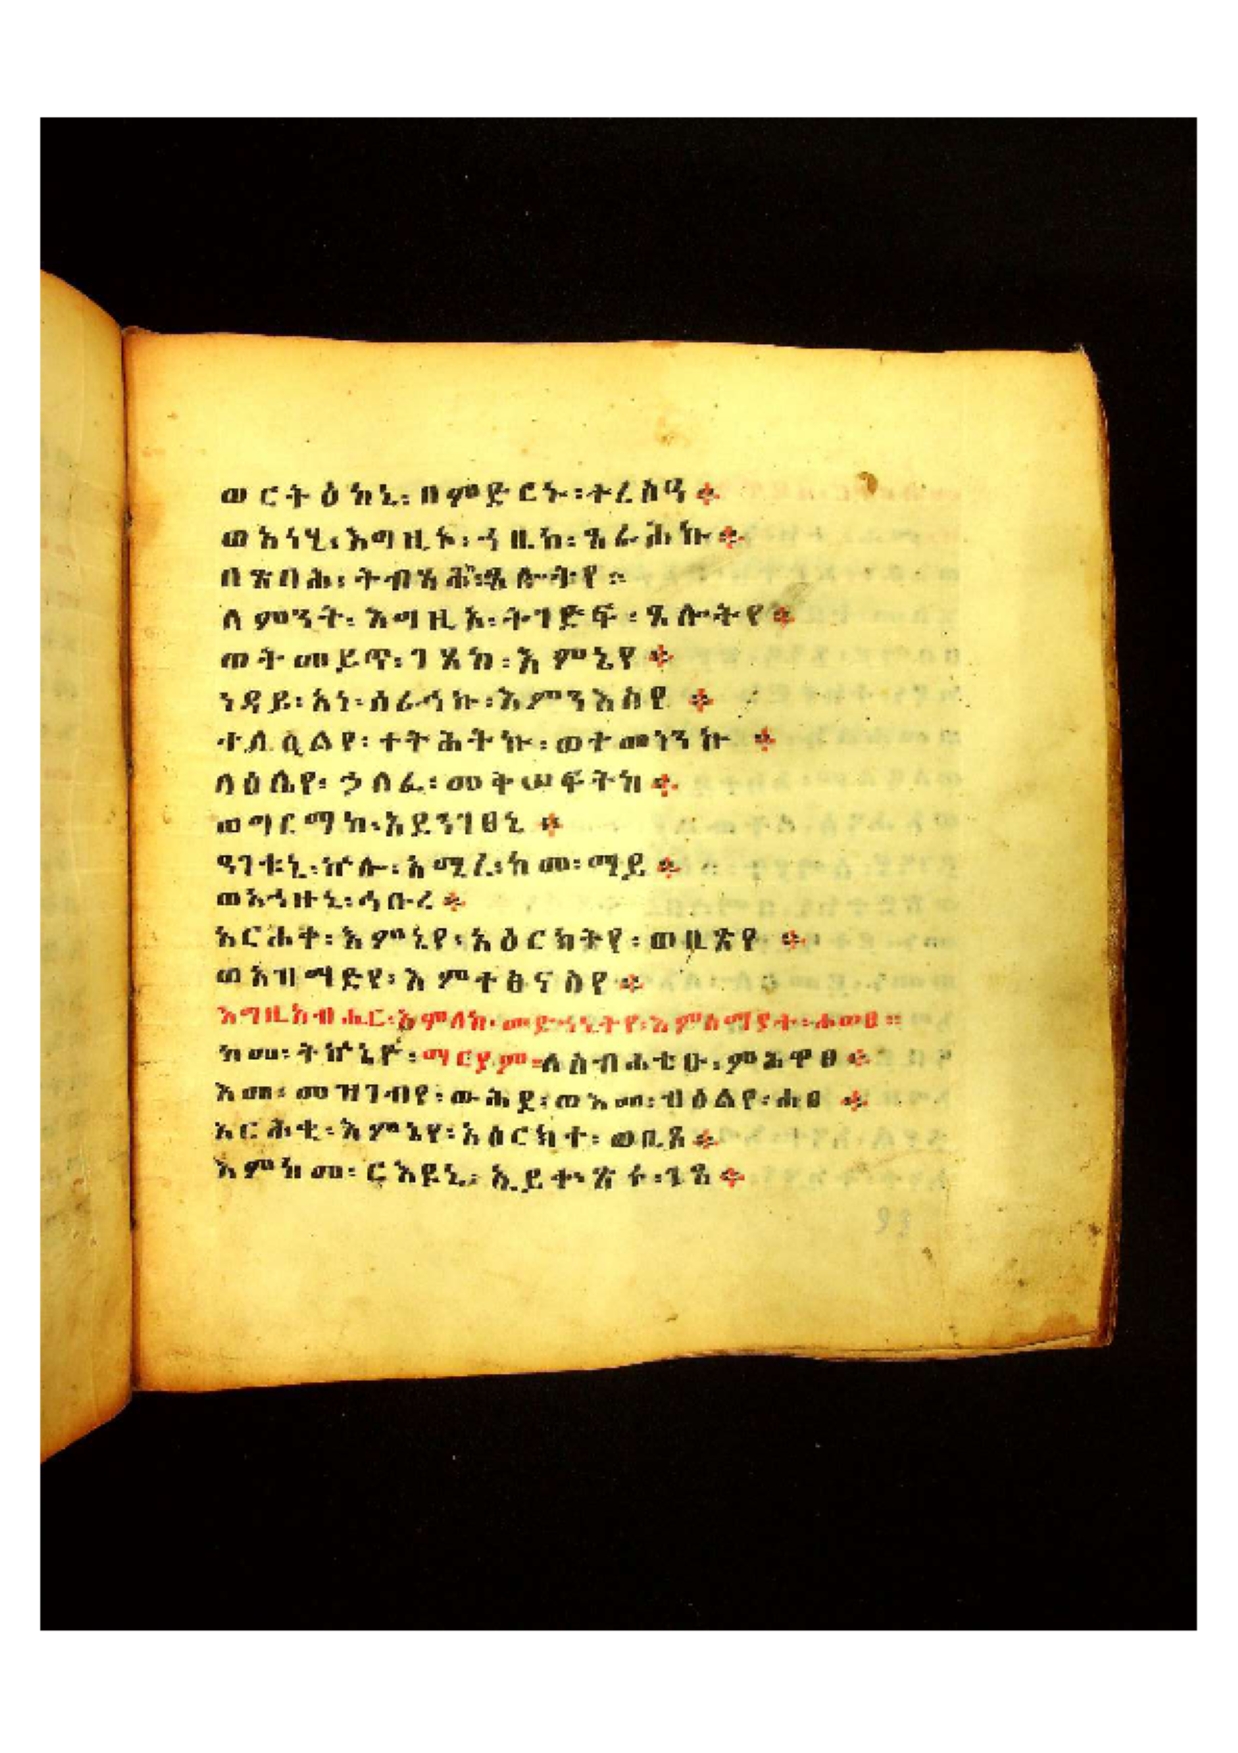 ወርትዕከኒ፡ በምድርኑ፡ ተረስዓ፨
ወአነሂ፡ እግዚኦ፡ ኀቤከ፡ ጸራሕኩ፨
በጽባሕ፡ ትብጻሕ፡ ጸሎትየ።
ለምንት፡ እግዚኦ፡ ትገድፍ፡ ጸሎትየ፨
ወትመይጥ፡ ገጸከ፡ እምኔየ፨
ነዳይ፡ አነ፡ ሰራኅኩ፡ እምንእስየ፨
ተለዒልየ፡ ተትሕትኩ፡ ወተመነንኩ፨
ላዕሌየ፡ ኃለፈ፡ መቅሠፍትከ፨
ወግርማከ፡ አደንገፀኒ፨
ዓገቱኒ፡ ኵሉ፡ አሚረ፡ ከመ፡ ማይ፨
ወአኀዙኒ፡ ኅቡረ፨
አርሐቀ፡ እምኔየ፡ አዕርክትየ፡ ወቢጽየ፨
ወአዝማድየ፡ እምተፅናስየ፨
እግዚአብሔር፡ አምላከ፡ መድኀኒትየ፡ እምሰማያት፡ ሐወፀ።
ከመ፡ ትኵኒዮ፡ ማርያም፡ ለስብሐቲሁ፡ ምጽዋፀ፨
እመ፡ መዝገብየ፡ ውሕደ፡ ወእመ፡ ብዕልየ፡ ሐፀ፨
አርሕቂ፡ እምኔየ፡ አዕርክተ፡ ወቢጸ፨
እምከመ፡ ርእዩኒ፡ ኢይቀጽሩ፡ ገጸ፨